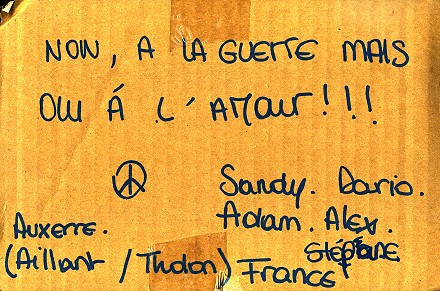 NON, A LA GUERRE MAIS
OUI Á L'AMOUR!!!
Sandy. Dario.
Auxerre. Adam. Alex.
STÉPHANE
(Aillant / Tholon) France